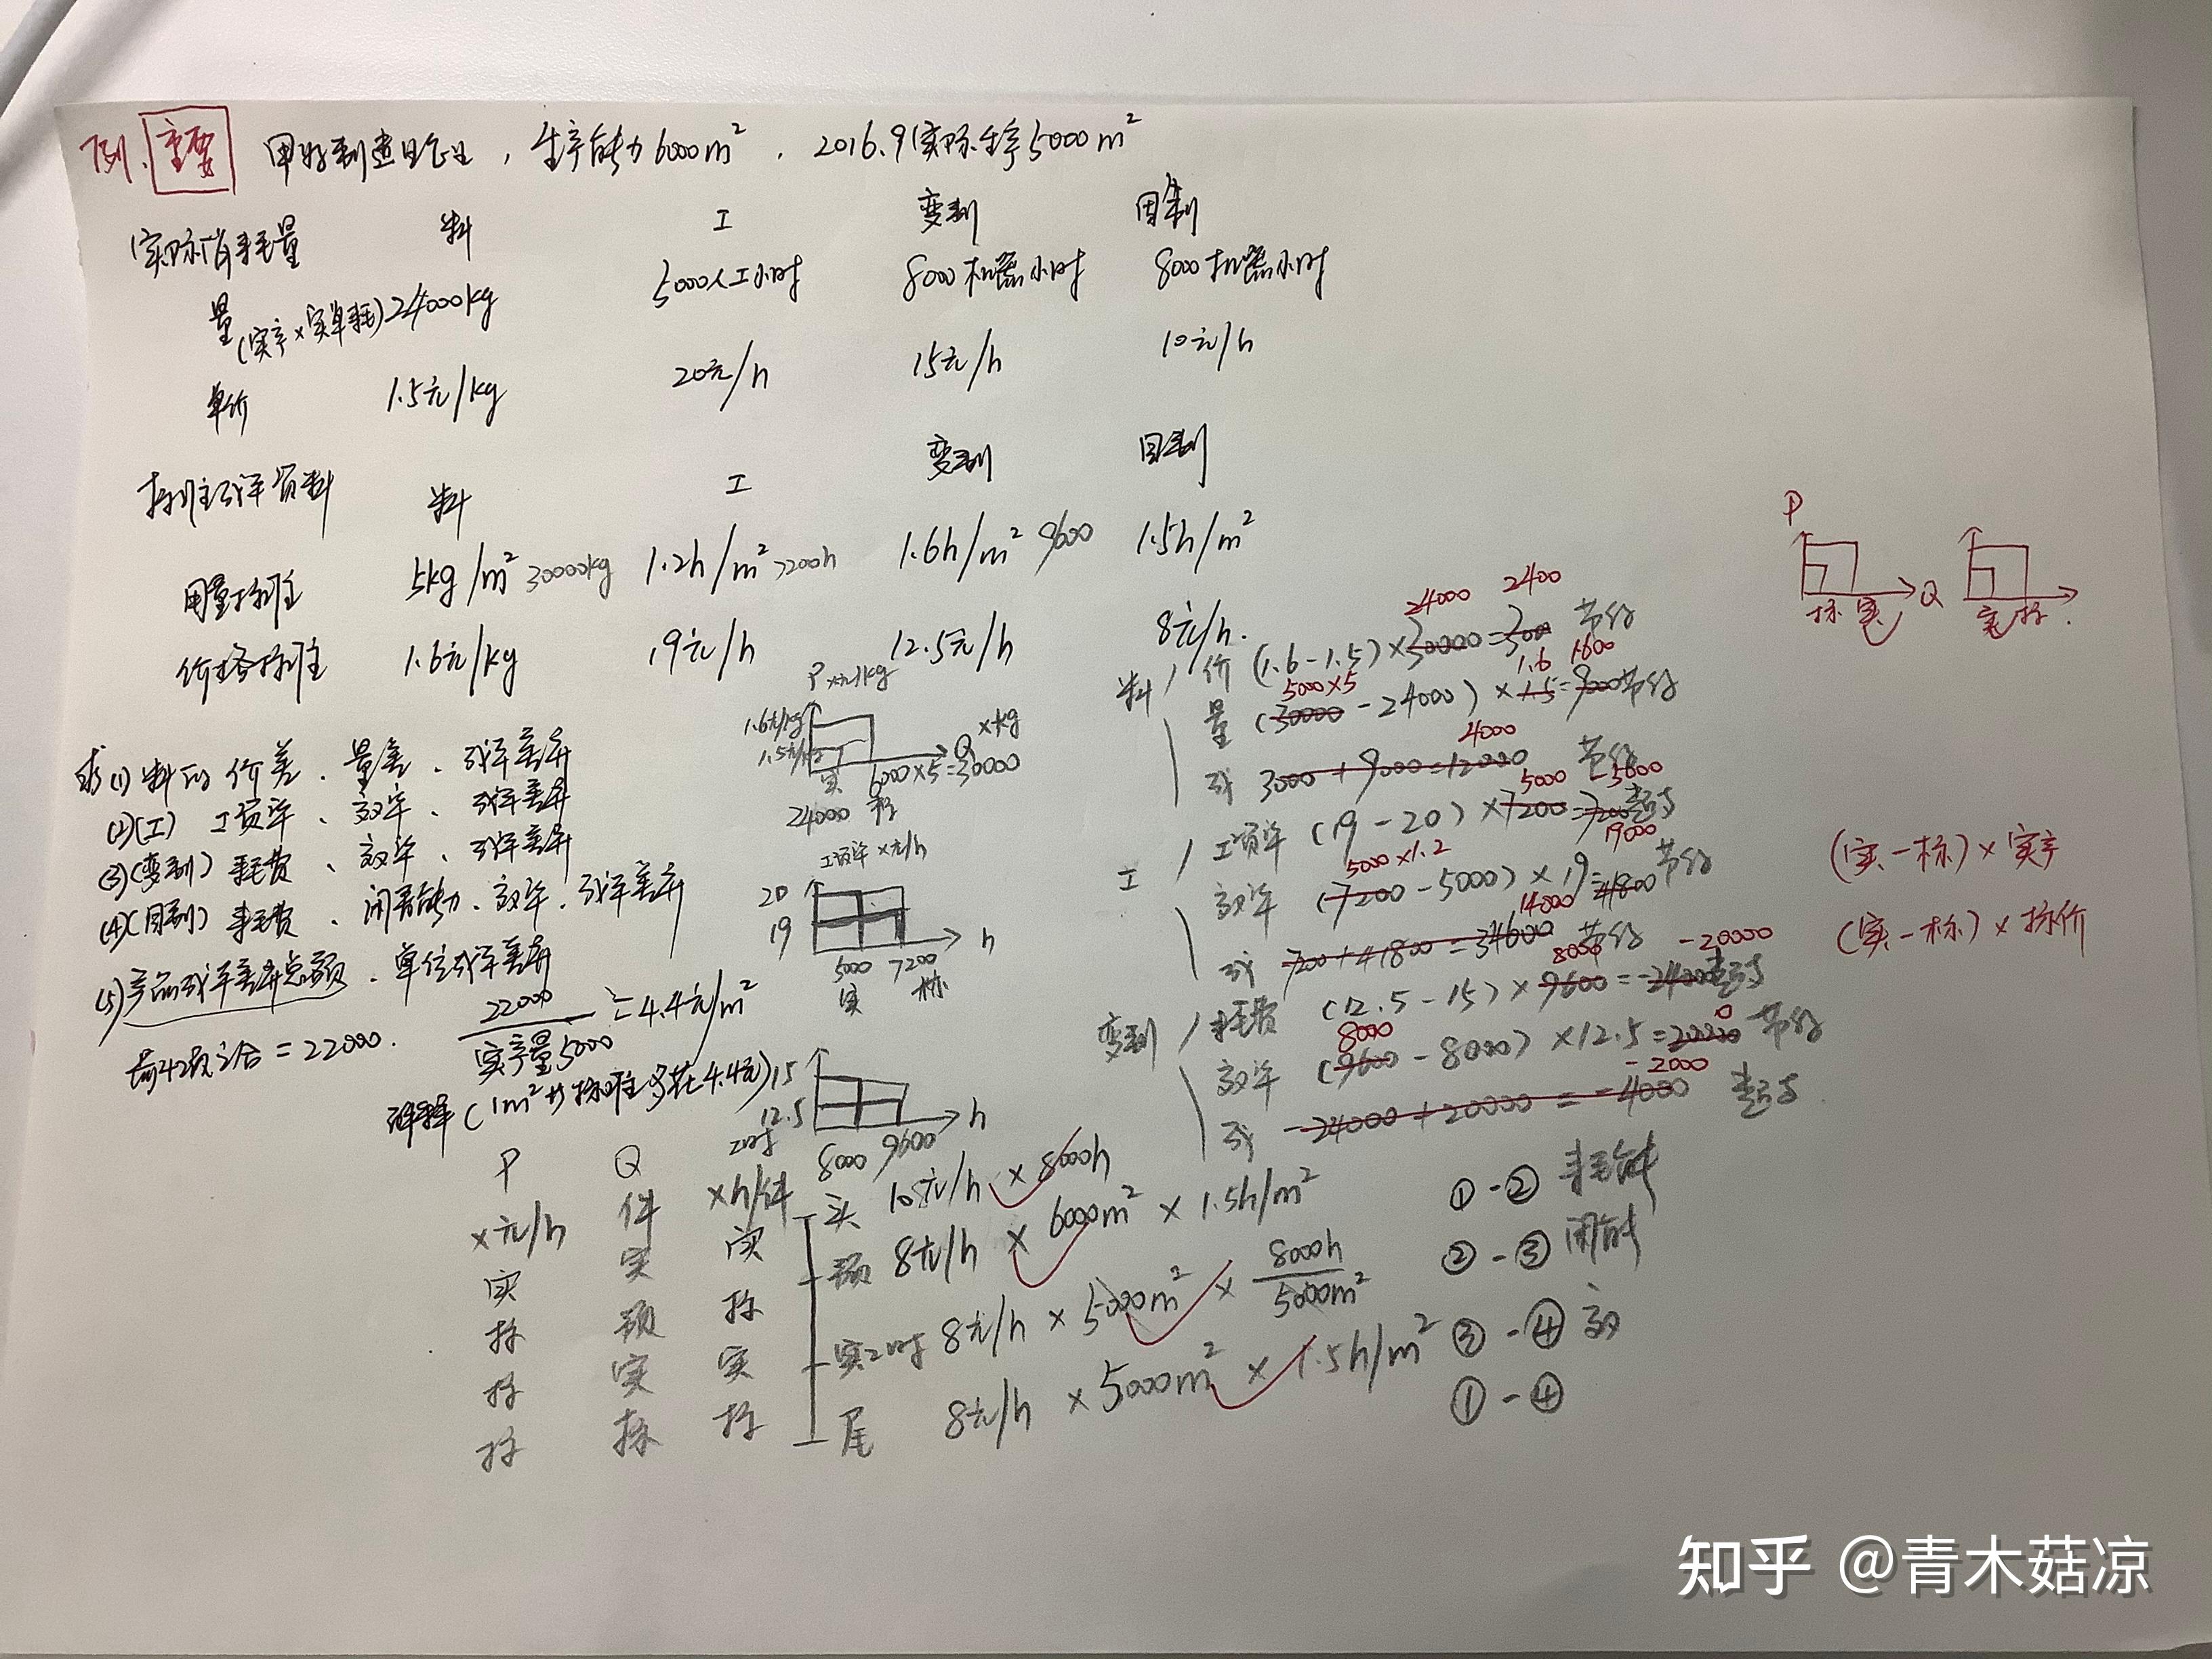 例. 重要 甲好制造企业, 生产能力6000m², 2016.9实际生产5000m²
实际消耗量 料 工 变制 固制
量(实产×实单耗) 24000kg 5000人工小时 8000机器小时 8000机器小时
单价 1.5元/kg 20元/h 15元/h 10元/h
标准成本资料 料 工 变制 固制
用量标准 5kg/m² 30000kg 1.2h/m² 7200h 1.6h/m² 9600 1.5h/m²
价格标准 1.6元/kg 19元/h 12.5元/h 8元/h.
求(1)料的价差、量差、成本差异
(2)(工) 工资率、效率、成本差异
(3)(变制) 耗费、效率、成本差异
(4)(固制) 耗费、闲置能力、效率、成本差异
(5)产品成本差异总额、单位成本差异
前4项之合=22000. 22000/实产量5000=4.4元/m²
解释(1m²比标准多花4.4元)
P ×元/kg
1.6元/kg
1.5元/kg
Q ×kg
实 6000×5=30000
24000 标
工资率 ×元/h
20
19
5000 7200 h
实 标
15
12.5
8000 9600 h
24000 2400
料 价 (1.6-1.5)×30000=300 节约
5000×5 1.6 1600
量 (30000-24000)×1.5=9000节约
4000
成 3000+9000=12000 节约
5000 -5000
工 工资率 (19-20)×7200=7200超支
5000×1.2 19000
效率 (7200-5000)×19=41800节约
14000
成 -7200+41800=34600 节约
8000 -20000
变制 耗费 (12.5-15)×9600=-24000超支
8000 0
效率 (9600-8000)×12.5=20000 节约
-2000
成 -24000+20000=-4000 超支.
P
标 实 Q
实 标.
(实-标)×实产
(实-标)×标价
P Q 工时
×元/h 件 ×h/件
实 实 实 头 10元/h×8000h ①-② 耗能
标 预 标 预 8元/h×6000m²×1.5h/m² ②-③ 闲能
标 实 实 实工时 8元/h×5000m²×8000h/5000m² ③-④ 效
标 标 标 尾 8元/h×5000m²×1.5h/m² ①-④
知乎 @青木菇凉